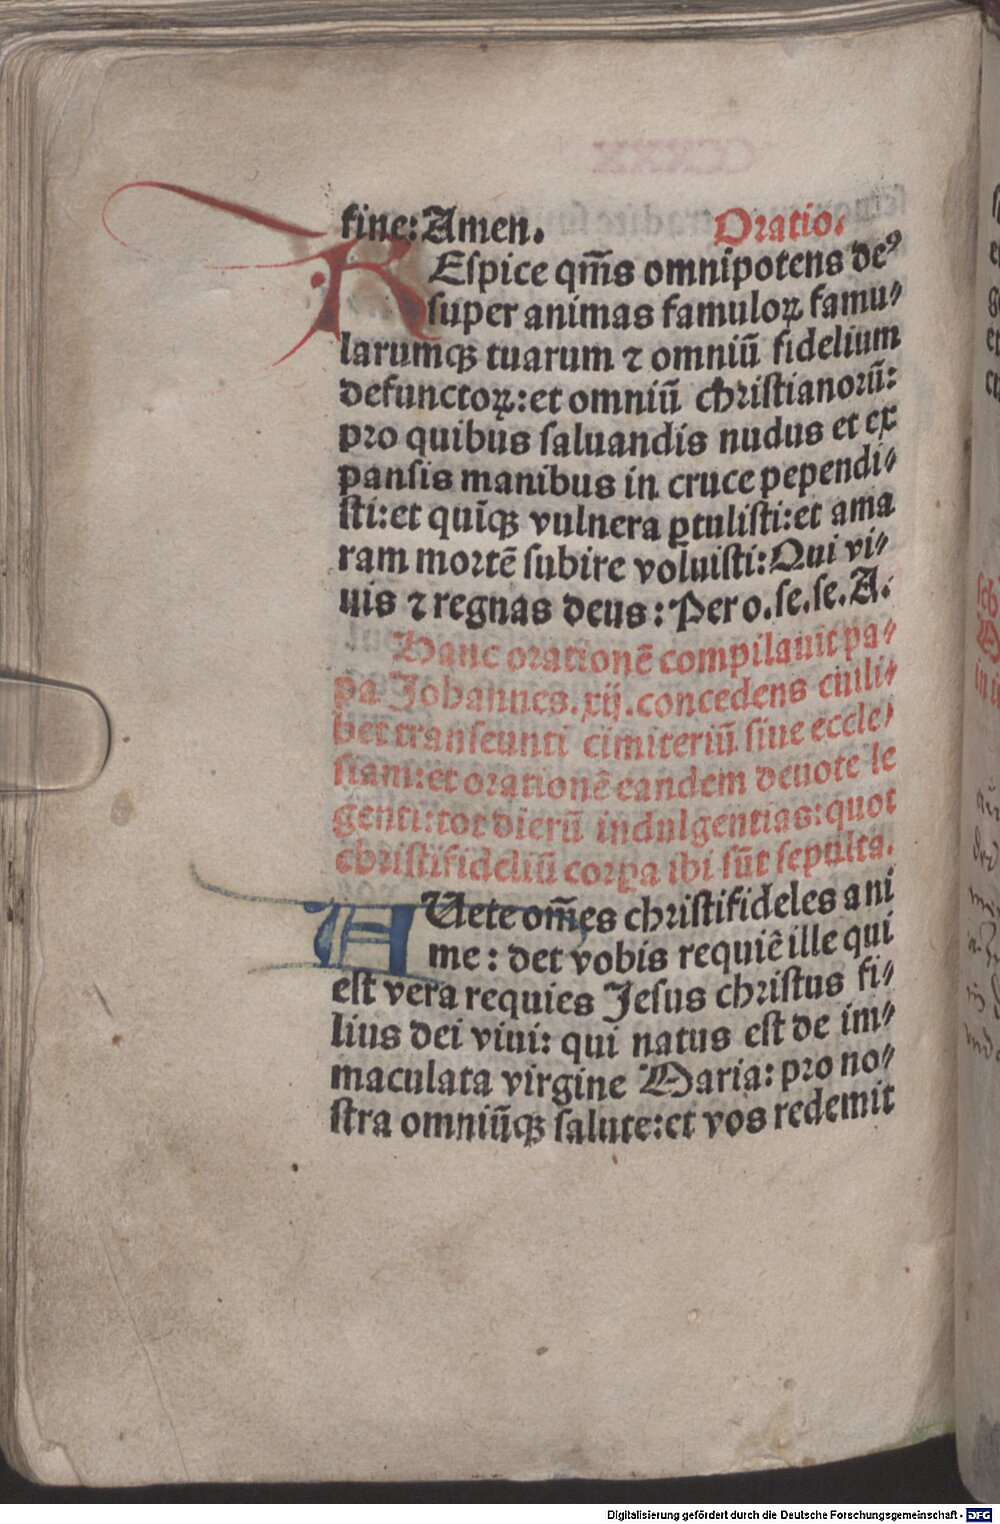 fine: Amen. Oratio.
REspice qm̄s omnipotens deꝰ
super animas famuloꝝ famu⸗
larumqꝫ tuarum ⁊ omniū fidelium
defunctoꝝ: et omniū christianorū:
pro quibus saluandis nudus et ex
pansis manibus in cruce pependi⸗
sti: et quīqꝫ vulnera ꝑtulisti: et ama
ram mortē subire voluisti: Qui vi⸗
uis ⁊ regnas deus: Per o. se. se. A.
Hanc orationē compilauit pa⸗
pa Johannes. xij. concedens cuili⸗
bet transeunti cimiteriū siue eccle⸗
siam: et orationē eandem deuote le
genti: tot dierū indulgentias: quot
christifideliū corꝑa ibi sūt sepulta.
AUete om̄es christifideles ani
me: det vobis requiē ille qui
est vera requies Jesus christus fi⸗
lius dei viui: qui natus est de im⸗
maculata virgine Maria: pro no⸗
stra omniūqꝫ salute: et vos redemit
Digitalisierung gefördert durch die Deutsche Forschungsgemeinschaft - DFG